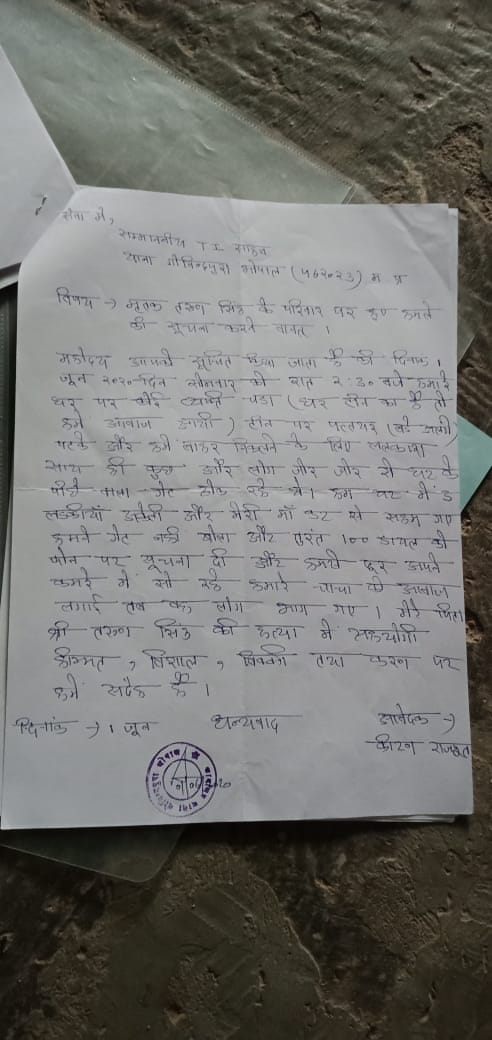 सेवा में,
सम्माननीय T I साहब
थाना गोविन्दपुरा भोपाल (462023) म प्र
विषय → मृतक तरुण सिंह के परिवार पर हुए हमले
की सूचना करने बावत ।
महोदय आपको सूचित किया जाता है की दिनांक 1
जून 2020 दिन सोमवार को रात 2:30 बजे हमारे
घर पर कोई व्यक्ति चडा (घर टीन का है तो
हमें आवाज आयी) टीन पर पत्थर
पटके और हमें बाहर निकलने के लिए ललकारा
साथ की कुछ और लोग जोर जोर से घर के
पीछे वाला गेट ठोक रहे थे। हम घर में 3
लडकीयाँ अकेली और मेरी माँ डर से सहम गए
हमने गेट नही खोला और तुरंत 100 डायल को
फोन पर सूचना दी और हमसे दूर अपने
कमरे में सो रहे हमारे चाचा को आवाज
लगाई तब वह लोग भाग गए। मेरे पिता
श्री तरुण सिंह की हत्या में सहयोगी
हिम्मत, विशाल, विक्की तथा करण पर
हमें संदेह है।
दिनांक → 1 जून धन्यवाद आवेदक →
किरण राजपूत